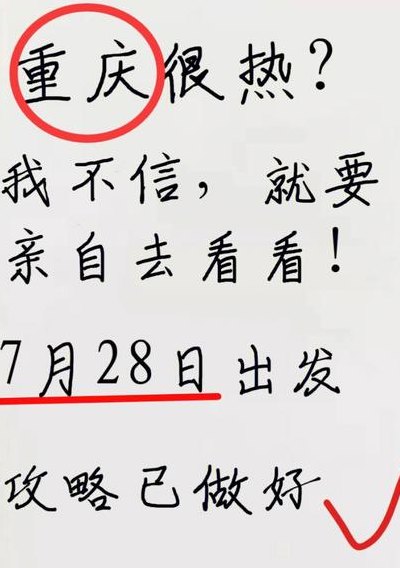 重庆很热?
我不信，就要
亲自去看看!
7月28日出发
攻略已做好